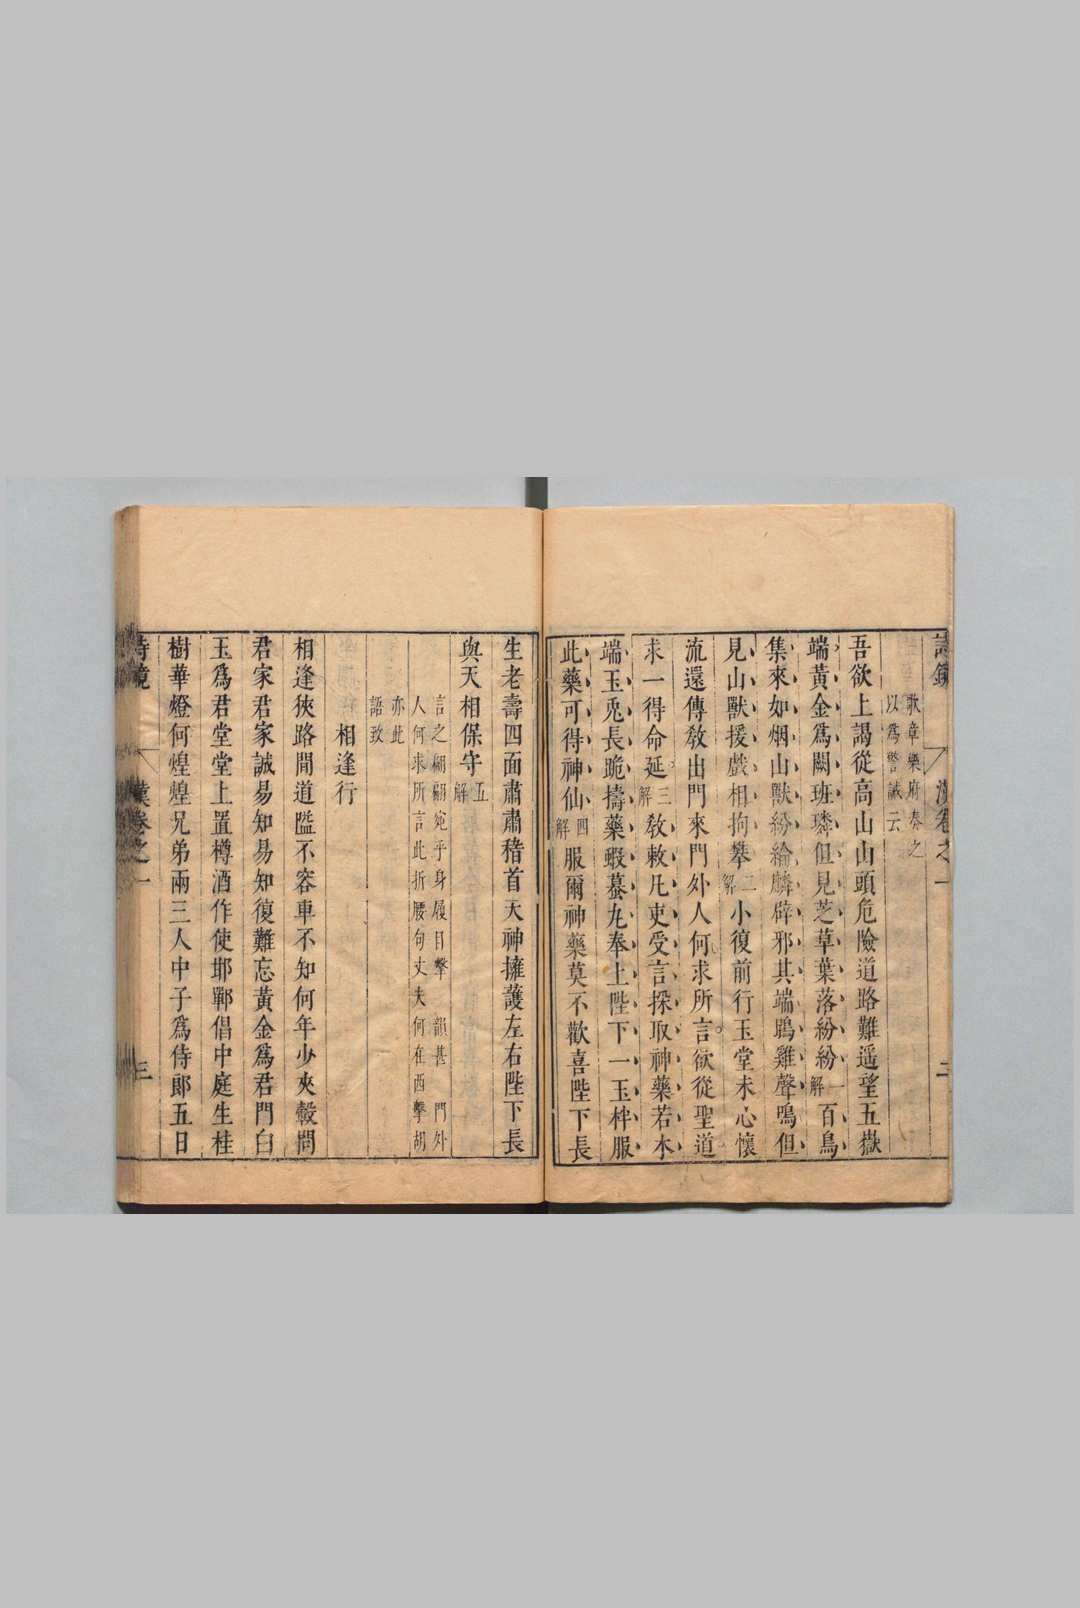 詩鏡 漢卷之一 二
歌章樂府奏之
以爲警誡云
吾欲上謁從高山山頭危險道路難遥望五嶽
端黃金爲闕班璘但見芝草葉落紛紛一解百鳥
集來如烟山獸紛綸麟辟邪其端鵾雞聲鳴但
見山獸援戲相拘攀二解小復前行玉堂未心懷
流還傳敎出門來門外人何求所言欲從聖道
求一得命延三解敎敕凡吏受言採取神藥若木
端玉兎長跪擣藥蝦蟇丸奉上陛下一玉柈服
此藥可得神仙四解服爾神藥莫不歡喜陛下長
生老壽四面肅肅稽首天神擁護左右陛下長
與天相保守五解
言之翩翩宛乎身履目擊 韻甚 門外
人何求所言此折腰句丈夫何在西擊胡
亦此
語致
相逢行
相逢狹路間道隘不容車不知何年少夾轂問
君家君家誠易知易知復難忘黃金爲君門白
玉爲君堂堂上置樽酒作使邯鄲倡中庭生桂
樹華燈何煌煌兄弟兩三人中子爲侍郞五日
詩鏡 漢卷之一 三